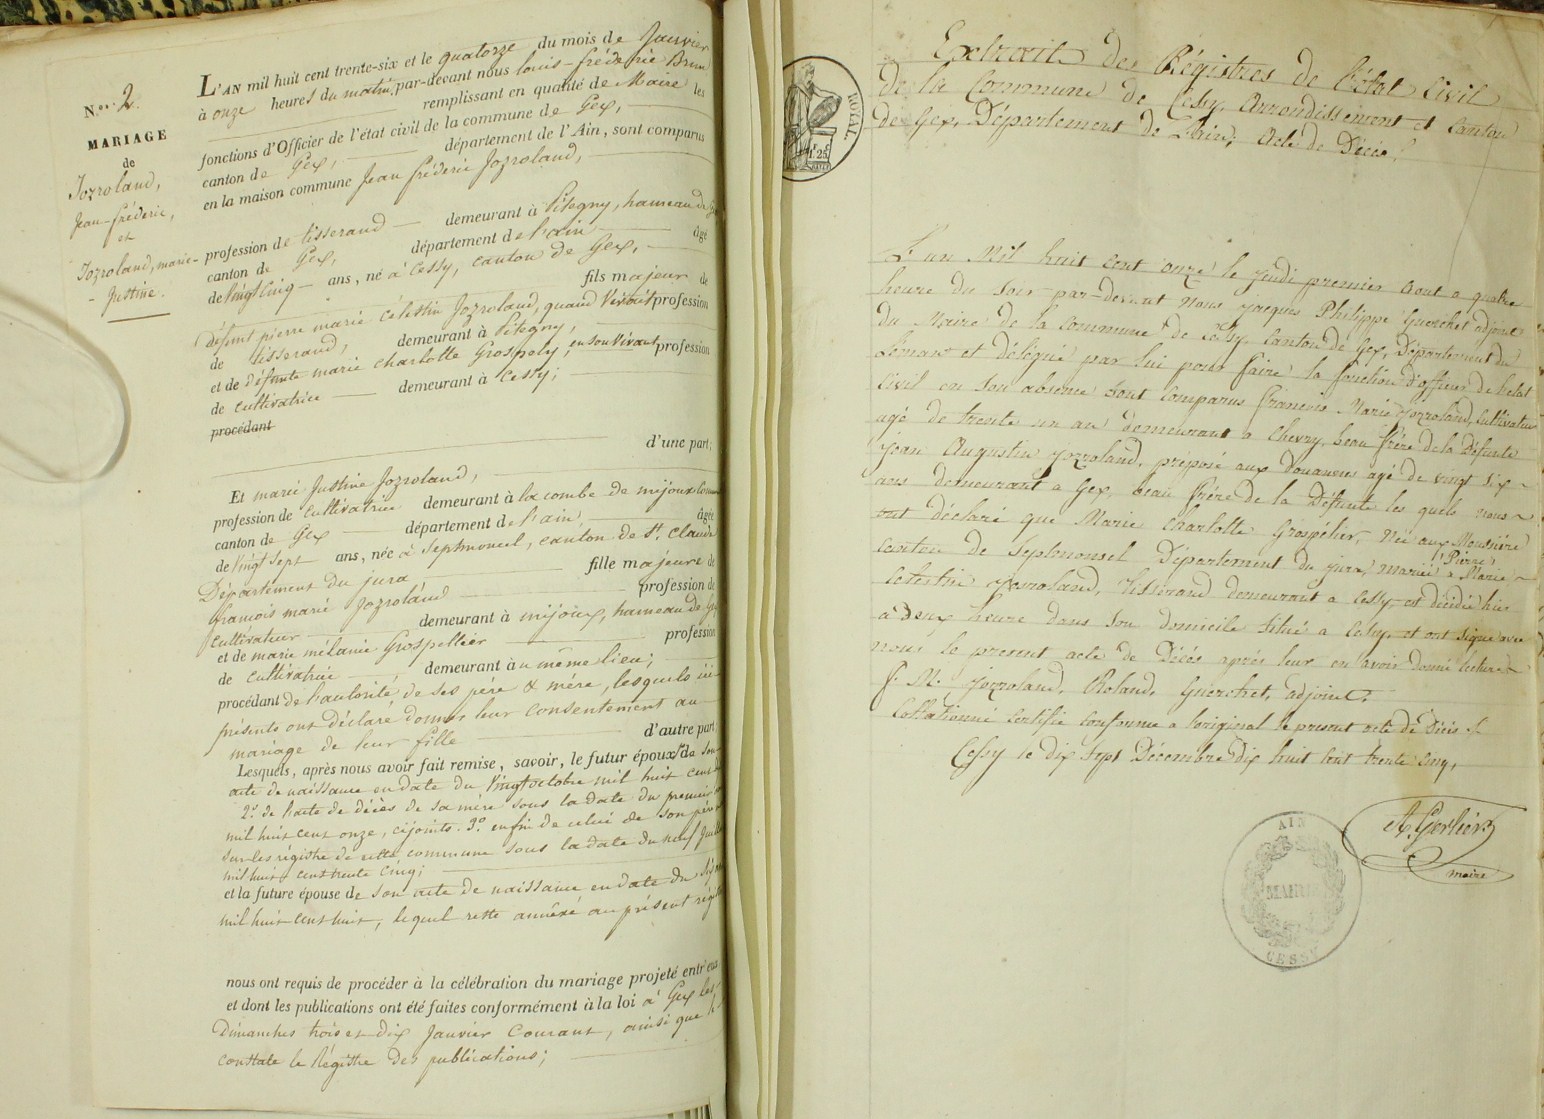 N.o 2.
MARIAGE
de
Jozroland,
Jean-fréderic,
et
Jozroland, marie-
-Justine.
L'AN mil huit cent trente-six et le quatorze du mois de Janvier
à onze heures du matin, par-devant nous louis-fréderic Brun
remplissant en qualité de Maire les
fonctions d'Officier de l'état civil de la commune de Gex,
canton de Gex, département de l'Ain, sont comparus
en la maison commune Jean fréderic Jozroland,
profession de tisserand demeurant à Pitegny, hameau de
canton de Gex, département de l'ain âgé
de Vingt Cinq ans, né à Cessy, canton de Gex,
fils majeur de
défunt pierre marie célestin Jozroland, quand Vivait profession
de tisserand, demeurant à Pitegny,
et de défunte marie charlotte Grospely, en son Vivant profession
de cultivatrice demeurant à Cessy;
procédant
d'une part;
Et marie Justine Jozroland,
profession de Cultivatrice demeurant à la combe de mijoux
canton de Gex département de l'ain âgée
de Vingt Sept ans, née à Septmoncel, canton de St. Claude
Département du jura fille majeure de
françois marie Jozroland profession de
Cultivateur demeurant à mijoux, hameau de
et de marie mélanie Grospellier profession
de Cultivatrice, demeurant au même lieu;
procédant de l'autorité de ses père & mère, lesquels ici
présents ont déclaré donner leur consentement au
mariage de leur fille d'autre part;
Lesquels, après nous avoir fait remise, savoir, le futur époux, de son
acte de naissance en date du Vingt octobre mil huit cent
2.o de l'acte de décès de sa mère sous la date du premier
mil huit cent onze, cijoints. 3.o enfin de celui de son père
sur les régistre de cette commune sous la date du neuf Juillet
mil huit cent trente Cinq;
et la future épouse de son acte de naissance en date du Six
mil huit cent huit, lequel reste annéxé au présent régistre
nous ont requis de procéder à la célébration du mariage projeté entr'eux
et dont les publications ont été faites conformément à la loi à Gex les
Dimanches trois et dix Janvier Courant, ainsi que le
constate le Régistre des publications;
ROYAL
1f. 25c
Extrait des Régistres de l'état Civil
de la Commune de Cessy, Arrondissement et Canton
de Gex, Département de l'Ain, Acte de Décès.
L'an Mil huit cent onze le jeudi premier aout a quatre
heure du soir par-devant Nous jacques Philippe Guerchet adjoint
du Maire de la commune de Cessy, Canton de Gex, Département du
Léman et délégué par lui pour faire la fonction d'officier de l'etat
civil en son absence sont comparus francois Marie Jozroland, Cultivateur
agé de trente un an demeurant a Chevry, beau frère de la Défunte
jean Augustin Jozroland, préposé aux Douannes agé de vingt six
ans demeurant a Gex, beau frère de la Défunte les quels nous
ont déclaré que Marie charlotte Grospélier, née aux Moussière
canton de Septmonsel Département du jura, marié a Pierre Marie
Celestin Jozroland, Tisserand demeurant a Cessy, est décédée hier
a Deux heure dans son domicile situé a Cessy, et ont signé avec
nous le present acte de Décès après leur en avoir donné lecture
f. M. Jozroland, Roland, Guerchet, adjoint.
Collationné certifié conforme a l'original le present acte de Décès
Cessy le dix Sept Décembre dix huit cent trente cinq,
A. Gerlier
maire
AIN
MAIRIE
CESSY